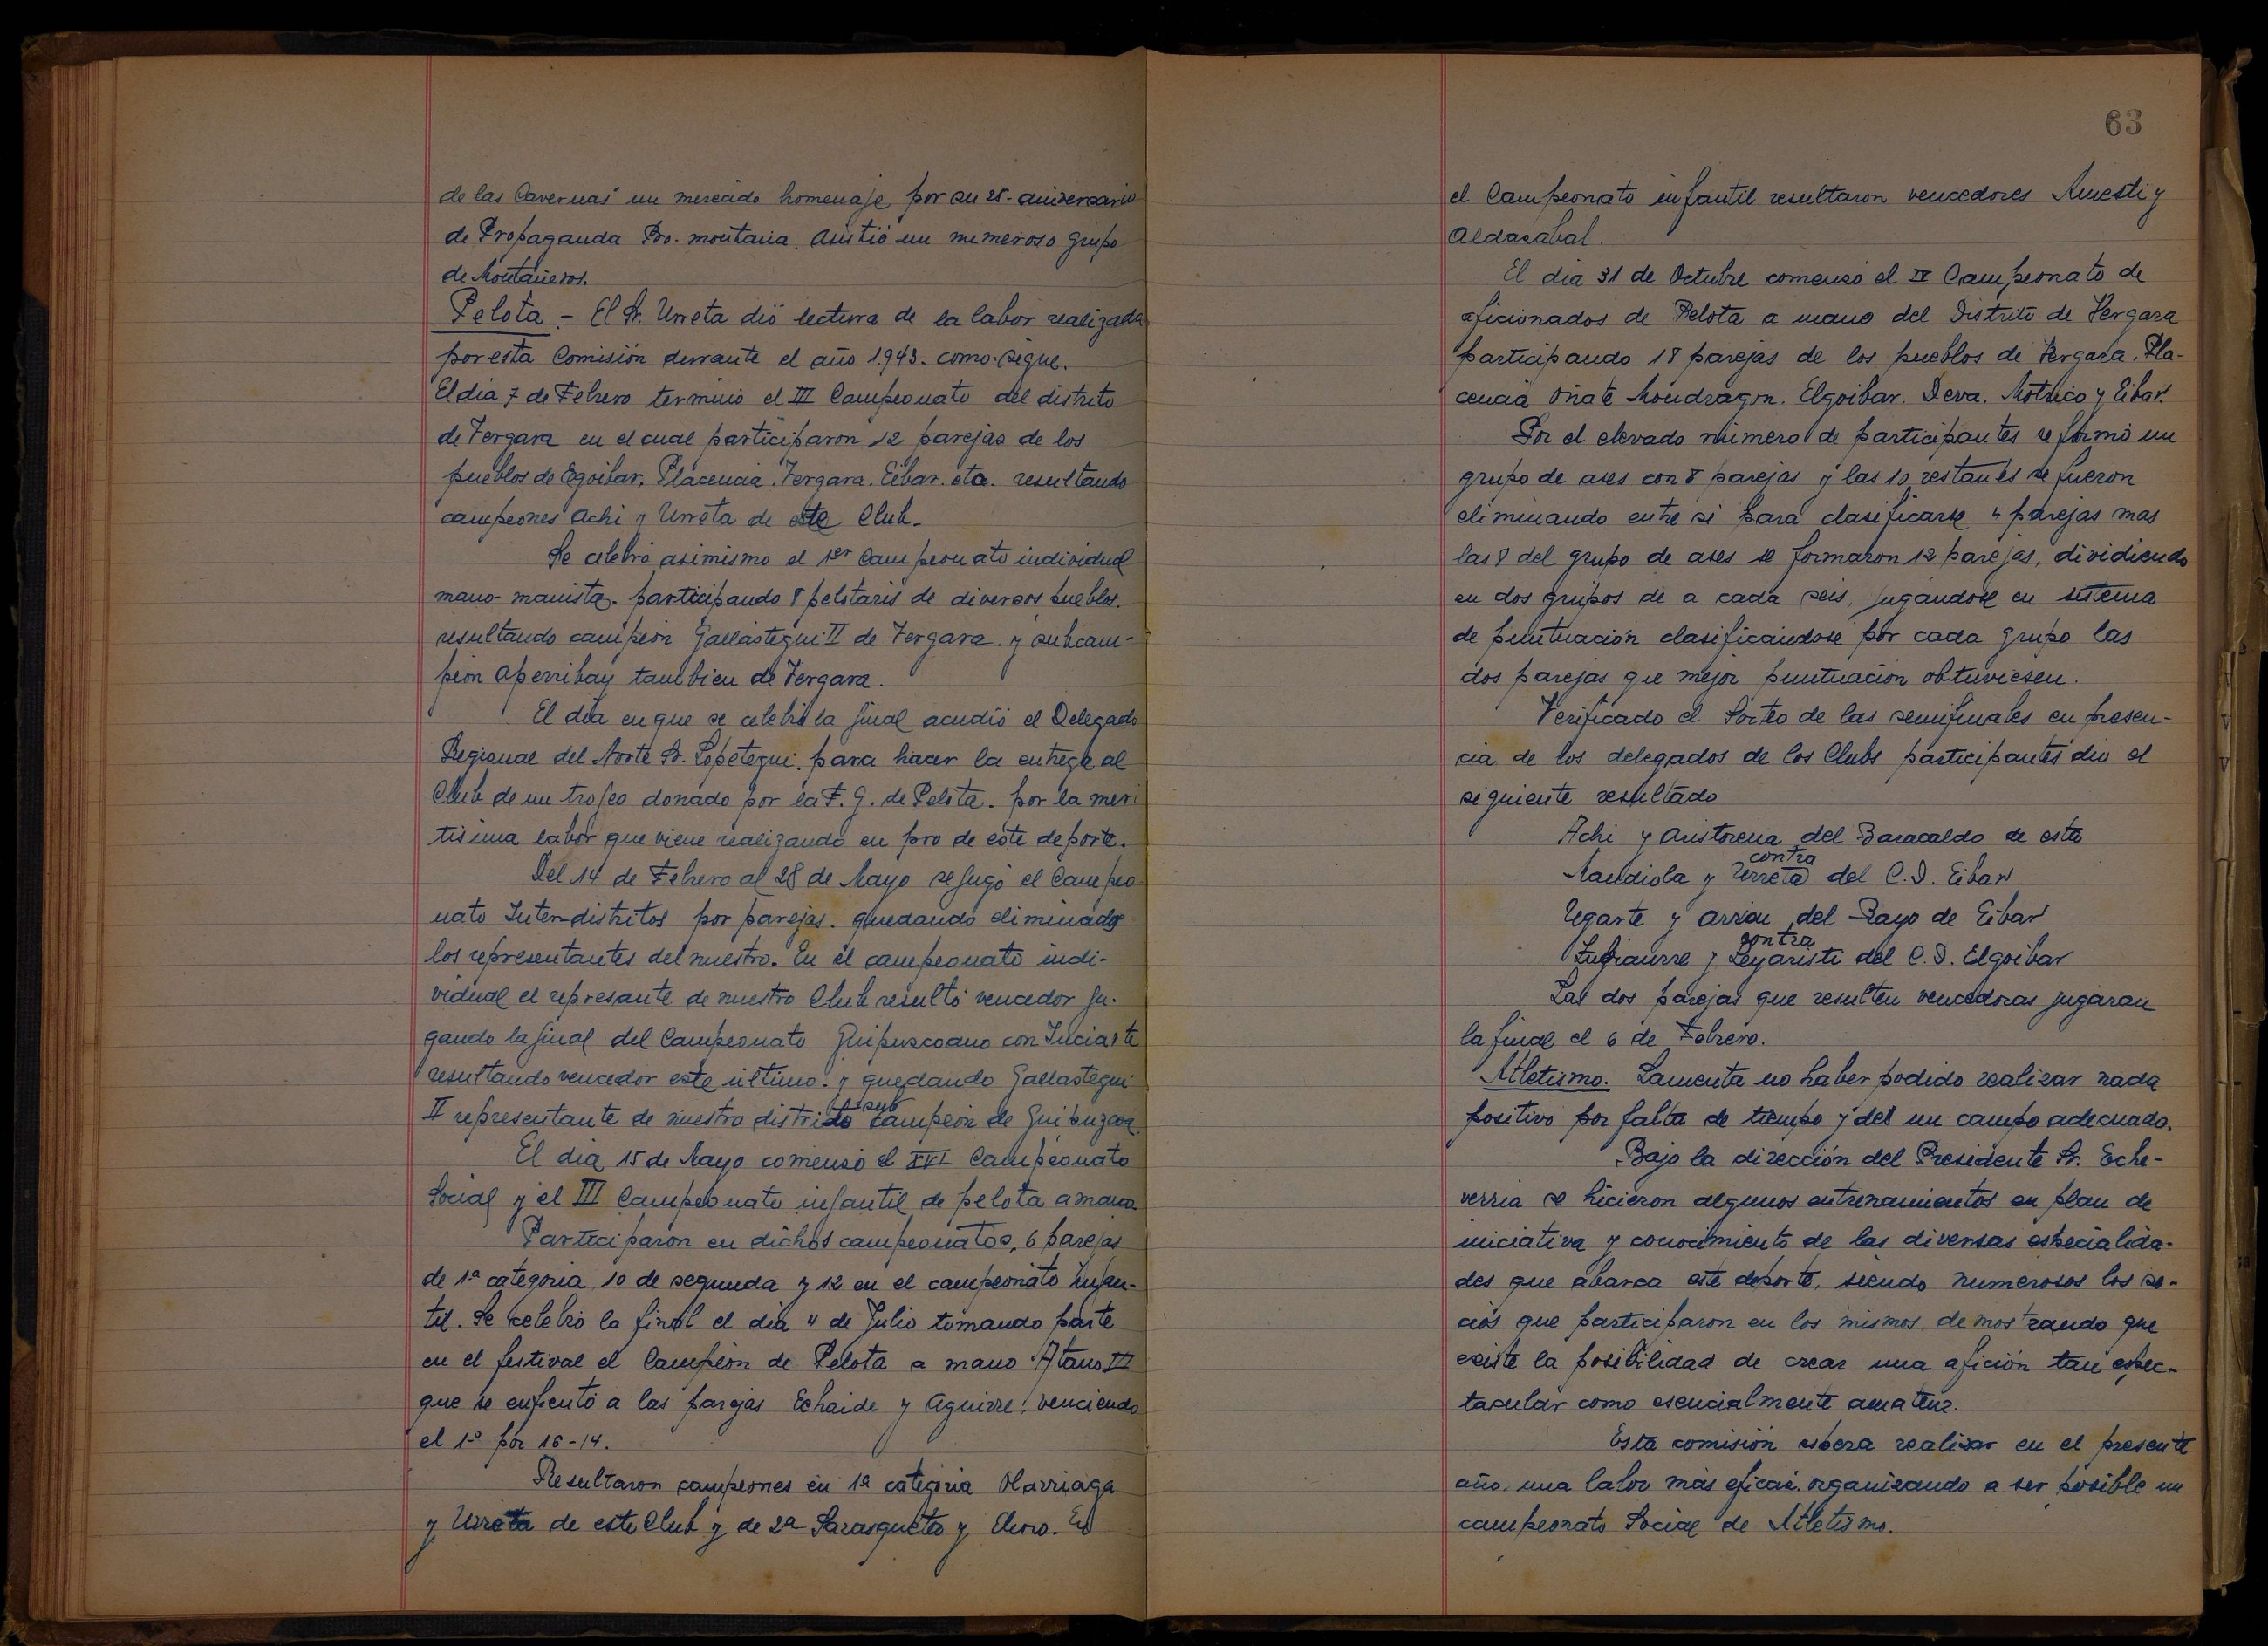 de las Cavernas" un merecido homenaje por su 25- aniversario
de Propaganda Pro. montaña. Asistió un numeroso grupo
de Montañeros.
Pelota - El Sr. Urreta dió lectura de la labor realizada
por esta Comisión durrante el año 1.943. como sigue.
El dia 7 de Febrero terminó el III Campeonato del distrito
de Vergara en el cual participaron 12 parejas de los
pueblos de Egoibar, Placencia. Vergara. Eibar. eta. resultando
campeones Achi y Urreta de este Club.
Se celebró asimismo el 1er Campeonato individual
mano-manista. participando 8 pelotaris de diversos pueblos.
resultando campeón Gallastegui II de Vergara. y subcam-
peón Aperribay tambien de Vergara.
El día en que se celebró la final acudió el Delegado
Regional del Norte Sr. Lopetegui. para hacer la entrega al
Club de un trofeo donado por la F. G. de Pelota. por la meri
tisima labor que viene realizando en pro de este deporte.
Del 14 de Febrero al 28 de Mayo se jugó el Campeo-
nato Inter-distritos por parejas. quedando eliminados
los representantes del nuestro. En el campeonato indi-
vidual el represante de nuestro Club resultó vencedor ju-
gando la final del Campeonato Guipuscoano con Iuciarte
resultando vencedor este último. y quedando Gallastegui
II representante de nuestro distrito sub campeón de Guipuzcoa.
El dia 15 de Mayo comensó el XVI Campeonato
Social y el III Campeonato infantil de pelota a mano.
Participaron en dichos campeonatos, 6 parejas
de 1ª categoria 10 de segunda y 12 en el campeonato Infan-
til. Se celebró la final el día 4 de Julio tomando parte
en el festival el Campeón de Pelota a mano Atano III
que se enfrentó a las parejas Echaide y Aguirre. venciendo
el 1º por 16-14.
Resultaron campeones en 1ª categoria Olarriaga
y Urreta de este Club y de 2ª Sarasqueta y En
63
el Campeonato infantil resultaron vencedores Amesti y
Aldazabal.
El día 31 de Octubre comensó el IV Campeonato de
aficionados de Pelota a mano del Distrito de Vergara
participando 18 parejas de los pueblos de Vergara. Pla-
cencia Oñate Mondragon. Elgoibar. Deva. Motrico y Eibar.
Por el elevado número de participantes se formó un
grupo de ases con 8 parejas y las 10 restantes se fueron
eliminando entre si para clasificarse 4 parejas mas
las 8 del grupo de ases se formaron 12 parejas, dividiendo
en dos grupos de a cada seis, jugandose en sistema
de puntuación clasificandose por cada grupo las
dos parejas que mejor puntuación obtuviesen.
Verificado el Sorteo de las semifinales en presen-
cia de los delegados de los Clubs participantes dio el
siguiente resultado
Achi y Aristorena del Baracaldo de esta
contra
Mandiola y Urreta del C.D. Eibar
Ugarte y Arzou del Rayo de Eibar
contra
Lubiaurre y Leyaristi del C.D. Elgoibar
Las dos parejas que resulten vencedoras jugaran
la final el 6 de Febrero.
Atletismo. Lamenta no haber podido realizar nada
positivo por falta de tiempo y del un campo adecuado.
Bajo la dirección del Presidente Sr. Eche-
verria se hicieron algunos entrenamientos en plan de
iniciativa y conocimiento de las diversas especialida-
des que abarca este deporte, siendo numerosos los so-
cios que participaron en los mismos, demostrando que
existe la posibilidad de crear una afición tan espec-
tacular como esencialmente amateur.
Esta comisión espera realizar en el presente
año. una labor más eficaz. organizando a ser posible un
campeonato Social de Atletismo.